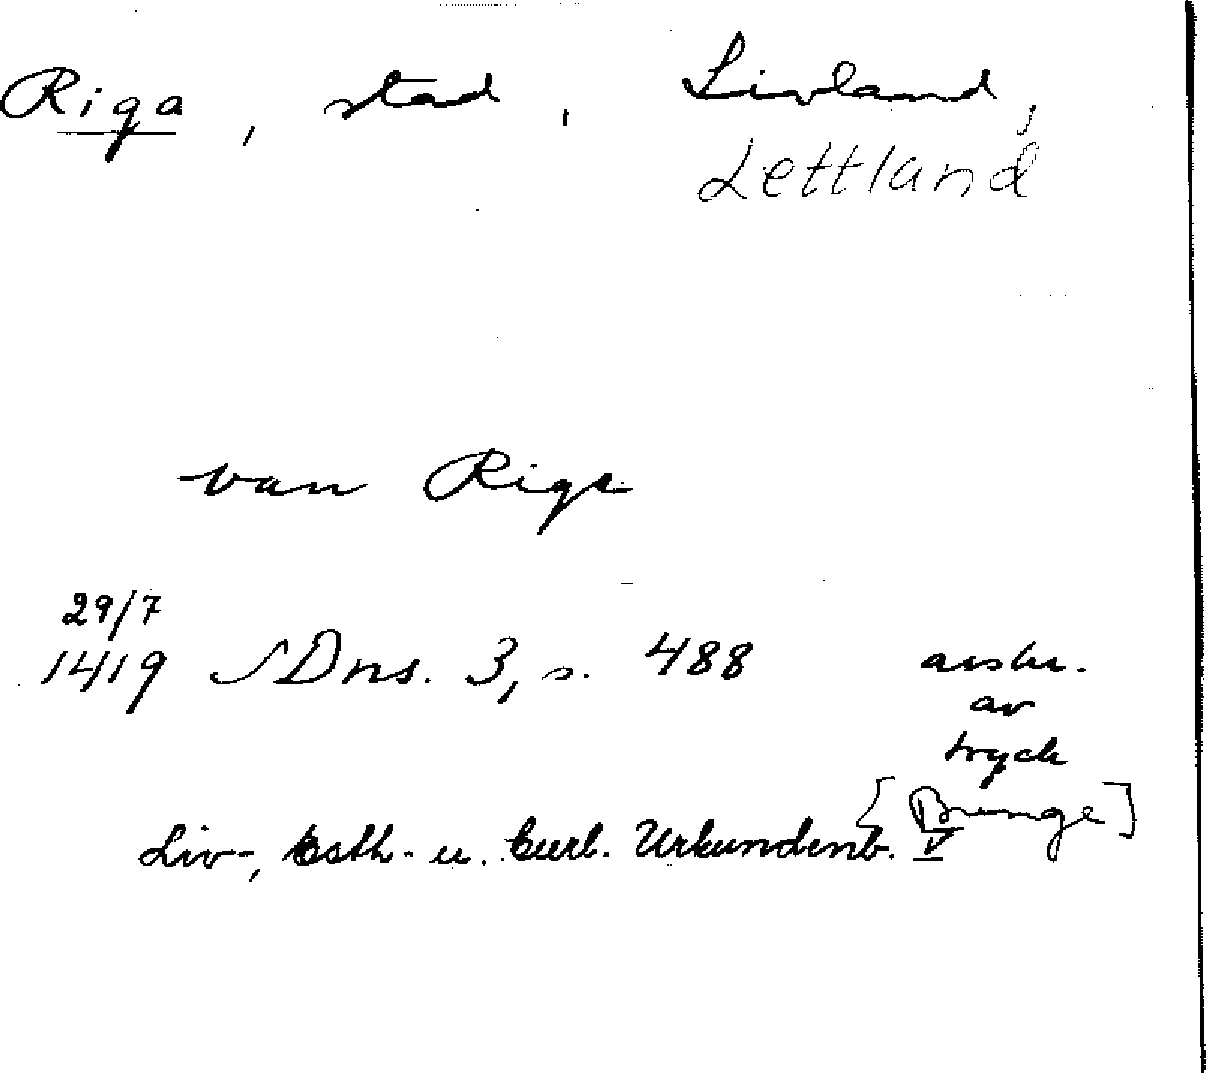 Riga, stad, Livland,
Lettland
van Rige
29/7
1419 SDns. 3, s. 488 avskr.
av
tryck
[Bunge]
Liv-, Esth- u. Curl. Urkundenb. V